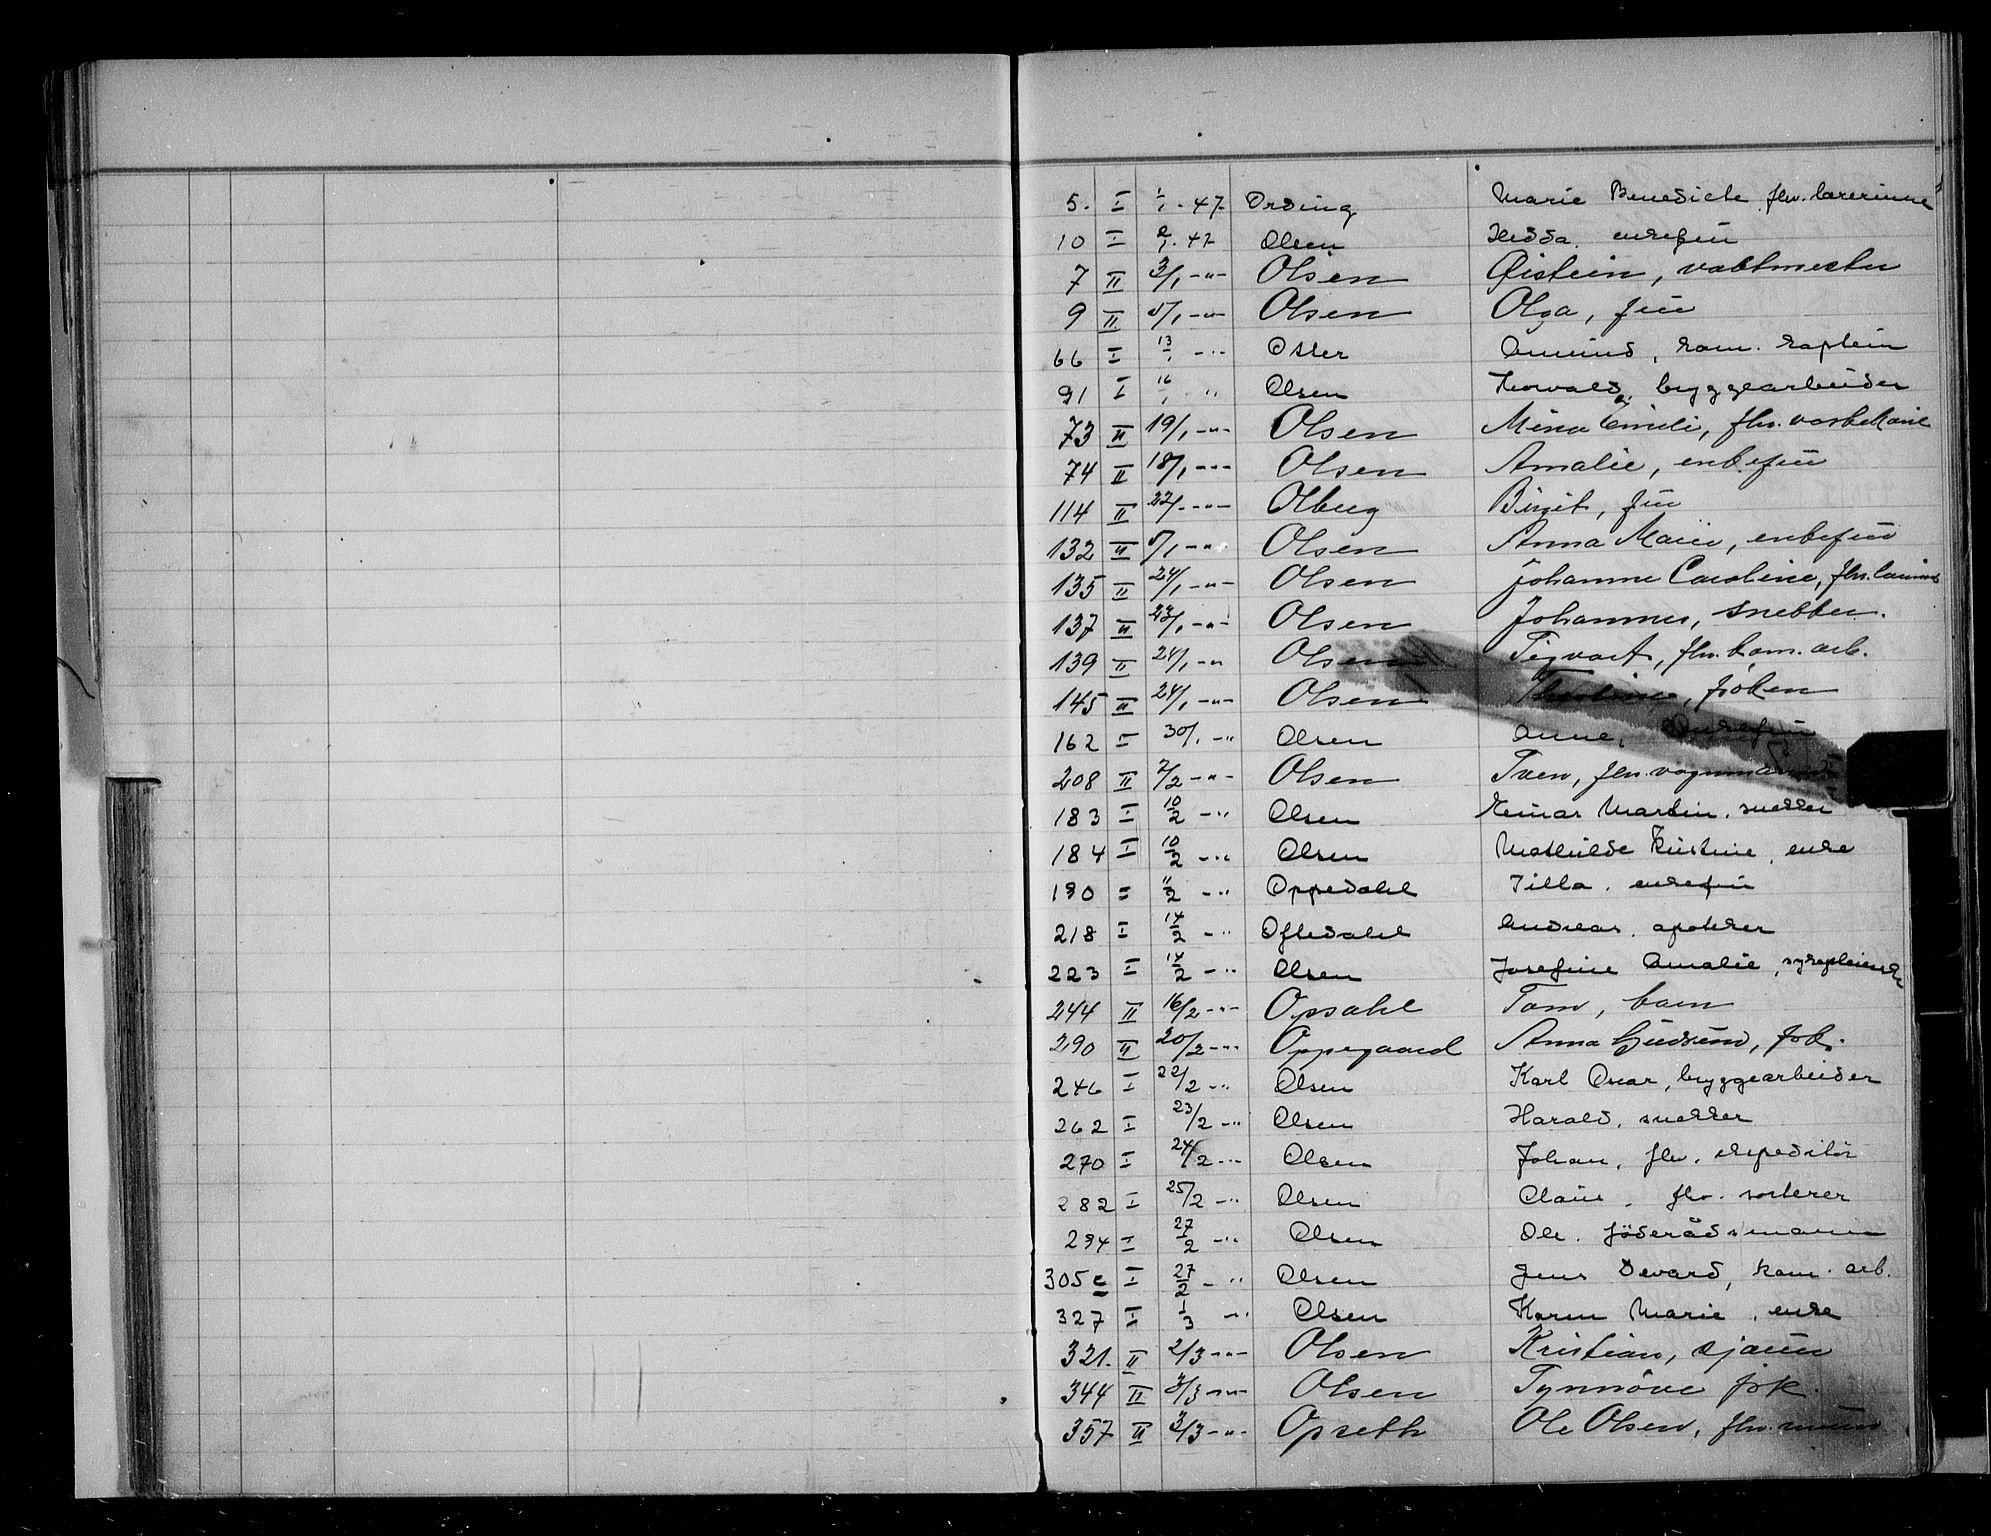 5. I 1/1 - 47 - Ording Marie Benedicte, fhv. lærerinne
10 I 2/1 - 47 Olsen Hedda, enkefru
7 II 3/1 -"- Olsen Øistein, vaktmester
9 II 5/1 -"- Olsen Olga, frü
66 I 13/1 -"- Amund, kom. kaptein
91 I 16/1 " Olsen Thorvald, byggearbeider
73 II 19/1 -"- Olsen Mina Emili, fhv.
74 II 18/1 -"- Olsen Amalie, enkefrü
114 II 22/1 -"- Olberg Birgit, frü
132 II 5/1 -"- Olsen Anna Marie, enkefrü
135 II 24/1 -"- Olsen Johanne Caroline, fhv.
137 II 23/1 -"- Olsen Johannes, snekker.
139 II 24/1 -"- Olsen Sigvart, fhv. kom. arb.
145 II 24/1 -"- Olsen frøken
162 I 30/1 -" Olsen Anne, Enkefrü
208 II 7/2 -"- Olsen Sven, fhv. vognmann
183 I 10/2 -" Olsen Einar Martin, snekker
184 I 10/2 -" Olsen Mathilde Kristine, enke
190 I 11/2 -" Oppedahl Silla, enkefrü
218 I 14/2 -" Oftedahl Andreas, apoteker
223 I 14/2 -" Olsen Josefine Amalie, sykepleierske
244 II 16/2 -"- Opsahl Tom, barn
290 II 20/2 -"- Oppegaard Anna Güdrün, frk.
246 I 22/2 -" Olsen Karl Oscar, byggearbeider
262 I 23/2 -" Olsen Harald, snekker
270 I 24/2 -" Olsen Johan, fhv. ekspeditør
282 I 25/2 -" Olsen Claus, fhv. sorterer
294 I 27/2 -" Olsen Ole, föderådsmann
305 c I 27/2 - " Olsen Jens Edvard, kom. arb.
327 I 1/3 -" Olsen Karen Marie, enke
321. II 2/3 -"- Olsen Kristian, sjauer
344 II 3/3 -"- Olsen Synnöve frk.
357 II 3/3 -"- Opseth Ole Olsen, fhv. murer